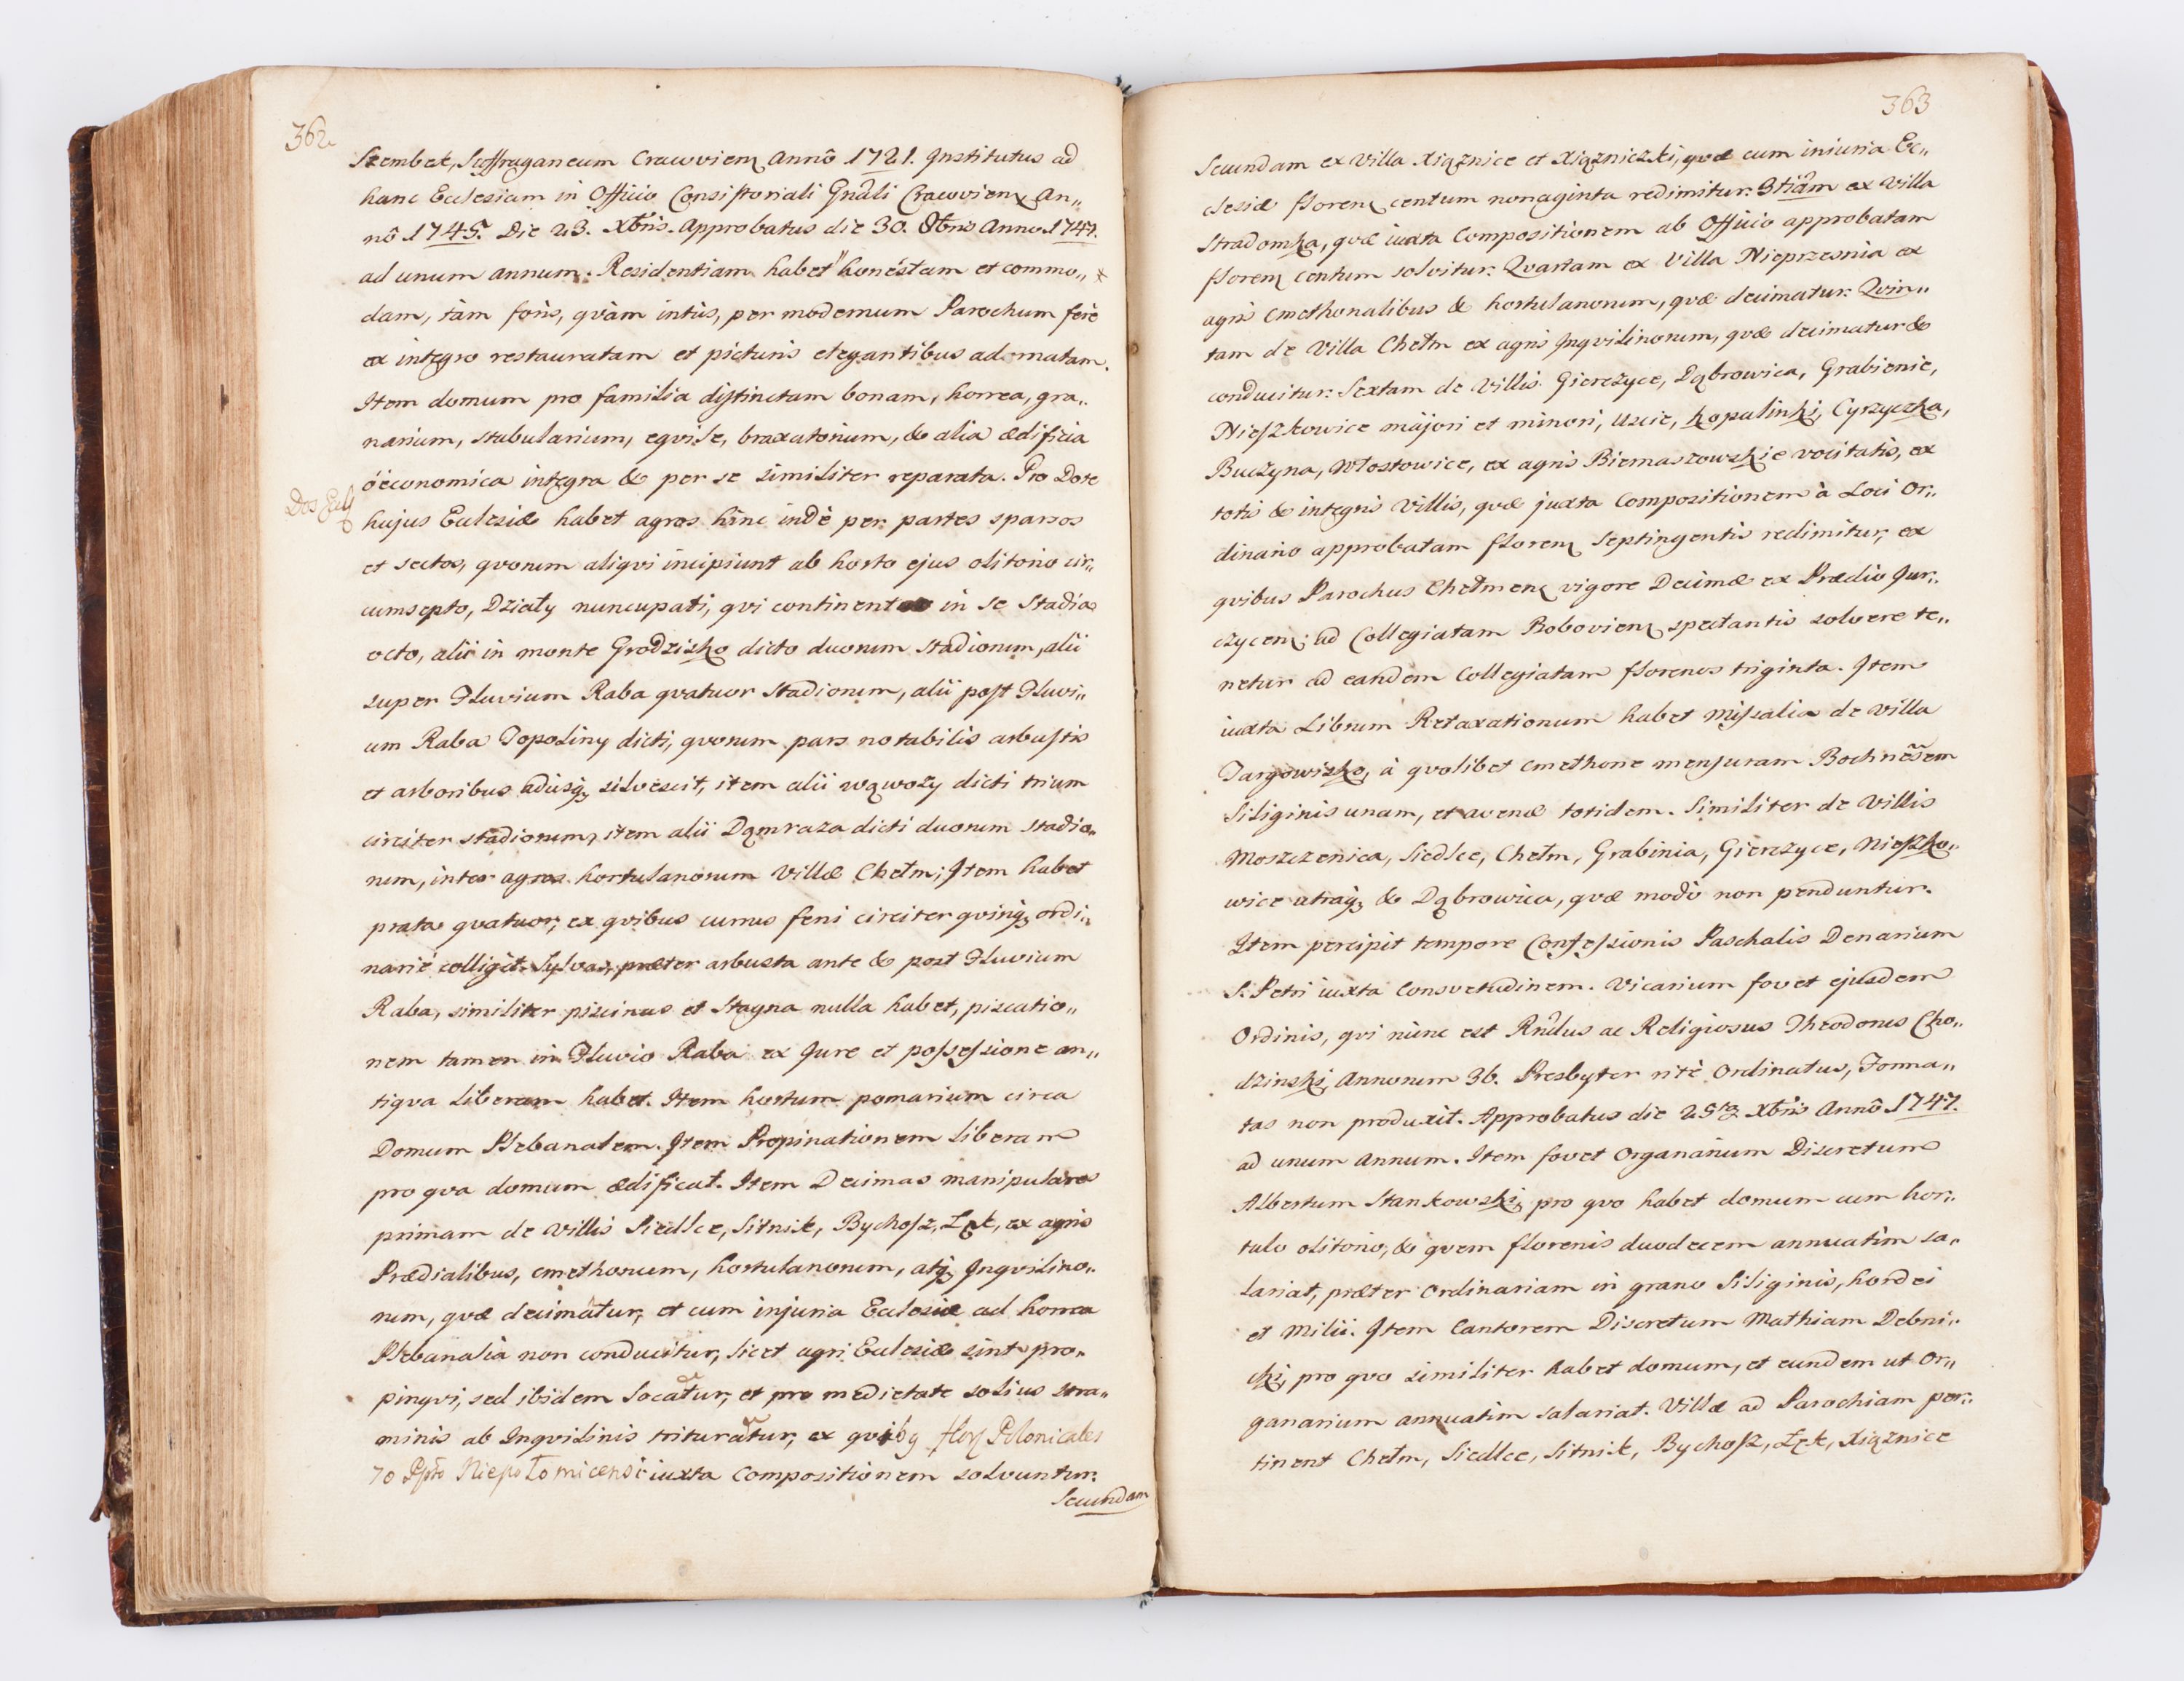 362
Szembek, Suffraganeum Cracovien Annô 1721. Institutus ad
hanc Ecclesiam in Officio Consistoriali Gnâli Cracovien An„
nô 1745. Die 23. Xbris. Approbatus die 30. 8bris Anno 1747.
ad unum annum. Residentiam habet honéstam et commo„
dam, tàm foris, qvàm intùs, per modernum Parochum ferè
ex integro restauratam et picturis elegantibus adornatam.
Item domum pro familia distinctam bonam, horrea, gra„
narium, stabularium, eqvile, braxatorium, & alia ædificia
öeconomica integra & per se similiter reparata. Pro Dote
Dos Eccl
hujus Ecclesiæ habet agros hinc indè per partes sparsos
et sectos, qvorum aliqvi incipiunt ab horto ejus olitorio cir„
cumsepto, Działy nuncupati, qvi continent in se Stadia
octo, alii in monte Grodzisko dicto duorum Stadiorum, alii
super Fluvium Raba qvatuor Stadiorum, alii post Fluvi„
um Raba Topoliny dicti, qvorum pars notabilis arbustis
et arboribus adusq, silvescit, item alii Wąwozy dicti trium
circiter stadiorum, item alii Dąmraza dicti duorum stadio„
rum, inter agros hortulanorum Villæ Chełm; Item habet
prata qvatuor, ex qvibus currus feni circiter qvinq, ordi„
nariè colligit. Sylvas, præter arbusta ante & post Fluvium
Raba, similiter piscinas et Stagna nulla habet, piscatio„
nem tamen in Fluvio Raba ex Jure et possessione an„
tiqva liberam habet. Item hortum pomarium circa
Domum Plebanalem. Item Propinationem liberam
pro qva domum ædificat. Item Decimas manipulares
primam de Villis Siedlce, Sitnik, Bychosz, Łęk, ex agris
Prædialibus, cmethonum, hortulanorum, atq, Inqvilino„
rum, qvæ decimatur, et cum injuria Ecclesiæ ad horrea
Plebanalia non conducitur, licet agri Ecclesiæ sint pro„
pinqvi, sed ibidem locatur, et pro medietate solius stra„
minis ab Inqvilinis trituratur, ex qvibg flor Polonicales
70 Ppto Niepołomicensi iuxta Compositionem solvuntur.
Secundam
363
Secundam ex Villa Xiąznice et Xiązniczki, qvæ cum iniuria Ec„
clesiæ floren centum nonaginta redimitur. 3tiam ex Villa
Stradomka, qvæ iuxta Compositionem ab Officio approbatam
floren centum solvitur. Qvartam ex Villa Nieprzesnia ex
agris Cmethonalibus & hortulanorum, qvæ decimatur. Qvin„
tam de Villa Chełm ex agris Inqvilinorum, qvæ decimatur &
conducitur. Sextam de Villis Gierczyce, Dąbrowica, Grabienie,
Nieszkowice májori et minori, Uscie, Kopalinki, Cyrzyczka,
Buczyna, Włostowice, ex agris Biemaszowskie vocitatis, ex
totis & integris Villis, qvæ juxta Compositionem à Loci Or„
dinario approbatam floren Septingentis redimitur, ex
qvibus Parochus Chełmen vigore Decimæ ex Prædio Jur„
czycen, ad Collegiatam Bobovien spectantis solvere te„
netur ad eandem Collegiatam florenos triginta. Item
iuxta Librum Retaxationum habet Missalia de Villa
Targowisko, à qvolibet Cmethone mensuram Bochnẽsem
Siliginis unam, et avenæ totidem. Similiter de Villis
Moszczenica, Siedlce, Chełm, Grabinia, Gierczyce, Nieszko„
wice utraq, & Dąbrowica, qvæ modò non penduntur.
Item percipit tempore Confessionis Paschalis Denarium
S. Petri iuxta Consvetudinem. Vicarium fovet ejusdem
Ordinis, qvi nunc est Rndus ac Religiosus Theodorus Cho„
dzinski, Annorum 36. Presbyter ritè Ordinatus, Forma„
tas non produxit. Approbatus die 25ta Xbris Annô 1747.
ad unum Annum. Item fovet Organarium Discretum
Albertum Stankowski, pro qvo habet domum cum hor„
tulo olitorio, & qvem florenis duodecem annuatim sa„
lariat, præter Ordinariam in grano Siliginis, hordei
et Milii. Item Cantorem Discretum Mathiam Debni„
cki, pro qvo similiter habet domum, et eundem ut Or„
ganarium annuatim salariat. Villæ ad Parochiam per„
tinent Chełm, Siedlce, Sitnik, Bychosz, Łęk, Xiąznice